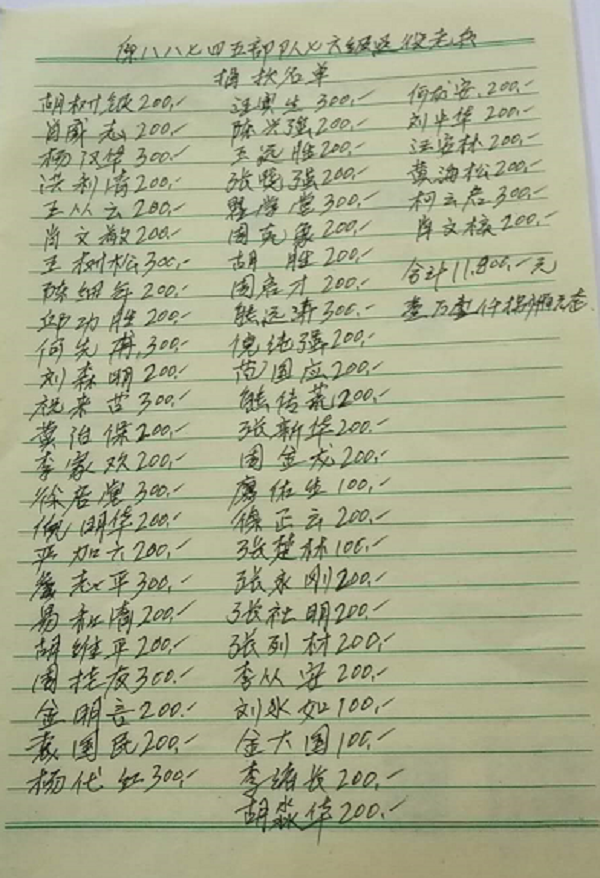 原八八七四五部队七六级退役老兵
捐款名单
胡树银200,-
肖威志200,-
杨汉华300,-
洪利清200,-
王从云200,-
肖文敏200,-
王树松300,-
陈细年200,-
邱功胜200,-
何先甫,300,-
刘森明200,-
祝来苟300,-
黄治保200,-
李家欢200,-
徐君堂300,-
倪明华200,-
严加六200,-
詹志平300,-
易和清200,-
胡维平200,-
周桂友300,-
金明言200,-
袁国民200,-
杨代红300,-
汪奥生300,-
陈兴强,200,-
王远胜200,-
张晓强200,-
学堂300,-
周苑象200,-
胡胜200,-
周启才200,-
熊远涛300,-
倪纯强200,-
范国应200,-
熊传荒200,-
张新华200,-
周金成200,-
廖佑生100,-
徐正云200,-
张楚林100,-
张永刚200,-
张社明200,-
张列材200,-
李从安200,-
刘水如100,-
金大国100,-
李绪长200,-
胡淼华200,-
何成安,200,-
刘少华200,-
汪安林200,-
黄海松200,-
柯云启300,-
肖文核200,-
合计11,800,-元
壹万壹仟捌佰元整.